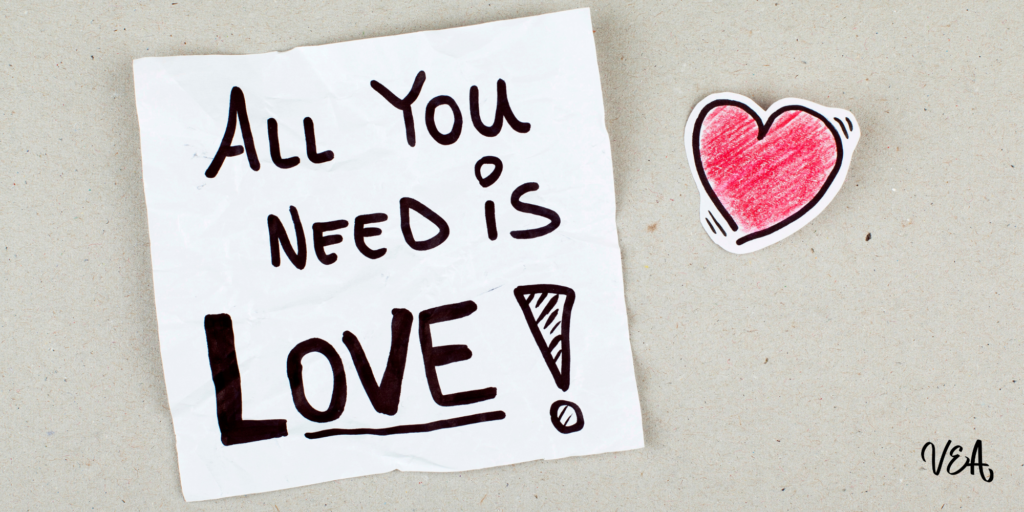 ALL YOU
NEED iS
LOVE!
VEA